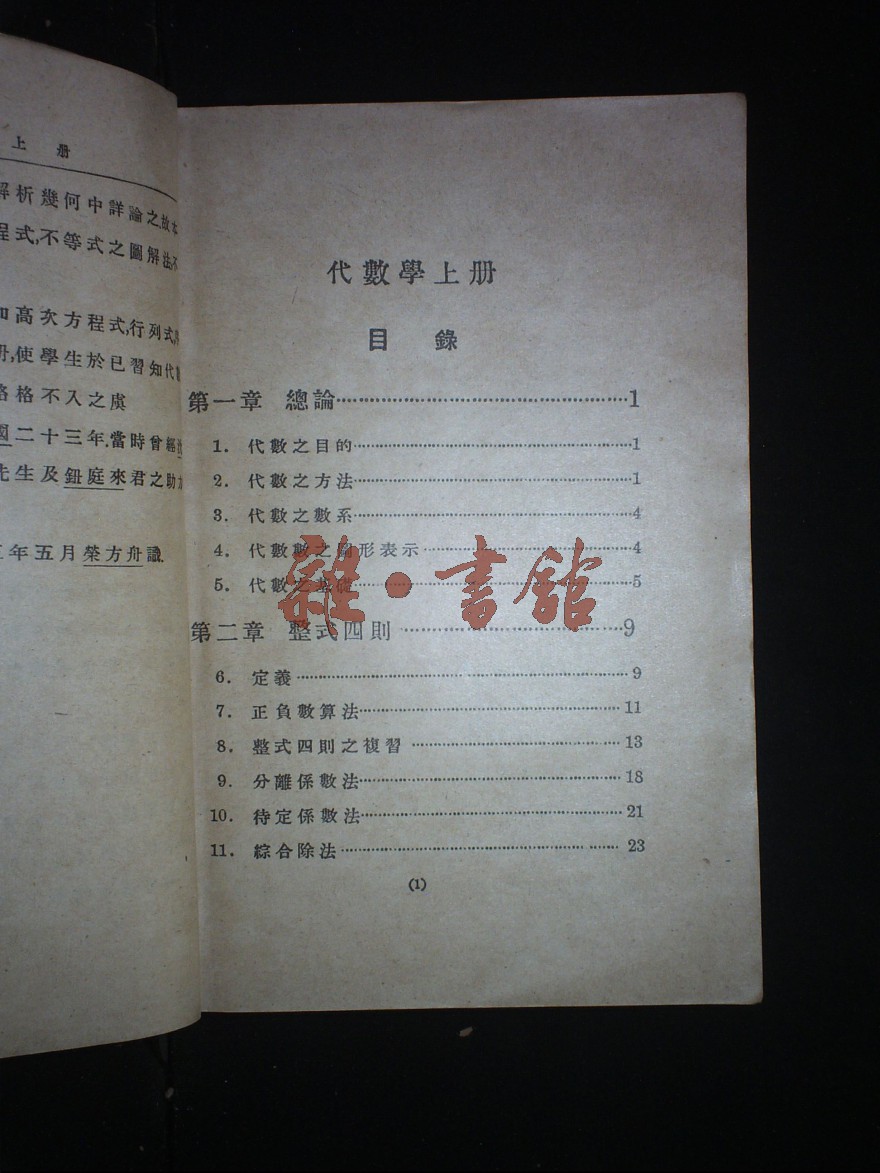 上册
解析幾何中詳論之,故本
程式,不等式之圖解法,不
如高次方程式,行列式,
使學生於已習知代數
格格不入之虞
國二十三年.當時曾經
先生及鈕庭來君之助力
年五月榮方舟識.
代數學上册
目錄
第一章 總論………1
1. 代數之目的………1
2. 代數之方法………1
3. 代數之數系………4
4. 代數數之圖形表示………4
5. 代數之基礎………5
雜·書館
第二章 整式四則………9
6. 定義………9
7. 正負數算法………11
8. 整式四則之複習………13
9. 分離係數法………18
10. 待定係數法………21
11. 綜合除法………23
(1)